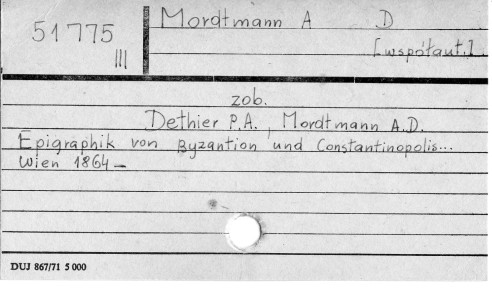 51775
III
Mordtmann A D
[współaut.]
zob.
Dethier P.A., Mordtmann A.D.
Epigraphik von Byzantion und Constantinopolis...
Wien 1864 –
DUJ 867/71 5 000